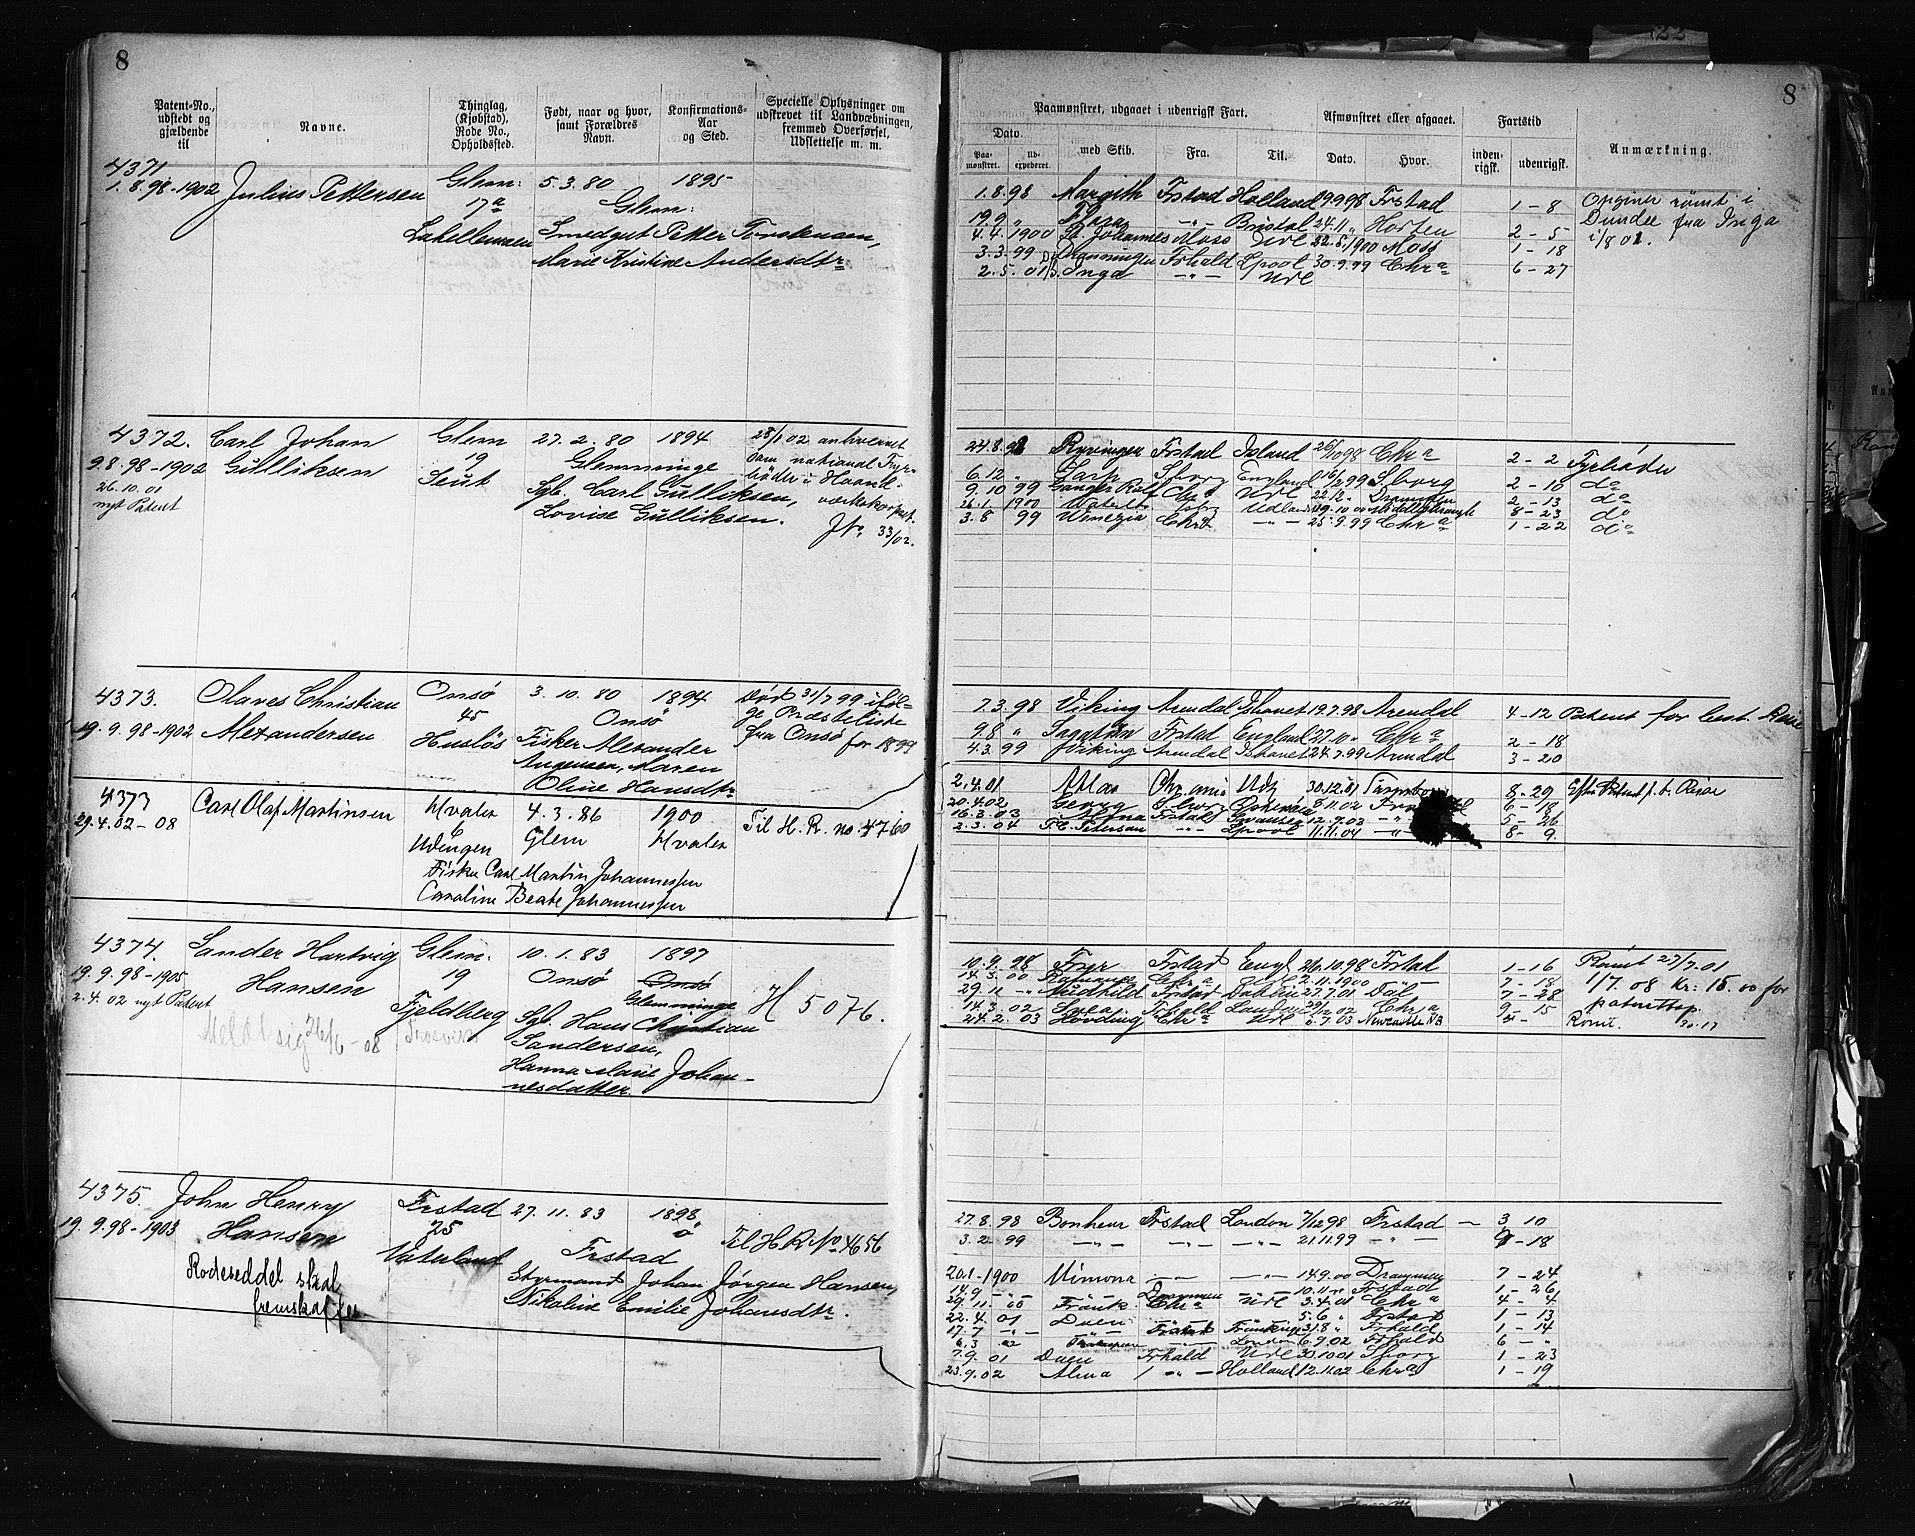 8
Patent-No., udstedt og gjældende til
Navne.
Thinglag, (Kjøbstad), Rode No., Opholdssted.
Født, naar og hvor, samt Forældres Navn.
Konfirmations-Aar og Sted.
Specielle Oplysninger om udskrevet til Landværbningen, fremmed Overførsel, Udslettelse m. m.
4371
1.8.98-1902 Julius Pettersen Glem: 5.3.80 1895
17a Glem:
Smedgut Petter Torstensen,
Marie Kristine Andersdtr
4372. Carl Johan Glem 27.2.80 1894 28/1 02 anhvervet
9.8.98-1902 Gulliksen 19 Glemminge som national Fyr-
26.10.01 Leut Sgb. Carl Gulliksen, bøder i Haand-
nyt Patent Lovise Gulliksen. værkskorpset.
JNo 33/02.
4373. Olaves Christian Onsø 3.10.80 1894 Død 31/7 99 iføl-
45 Onsø ge Presteliste
19.9.98-1902 Alexandersen Husløs Fisker Alexander fra Onsø for 1899
Augensen, Maren
Oline Hansdtr
4373 Carl Olaf Martinsen Hvaler 4.3.86 1900
29.4.02-08 6 Glem Hvaler Til H. R. no 4760
Udengen
Fisker Carl Martin Johannessen
Caroline Beate Johannessen
4374. Sander Hartvig Glem. 10.1.83 1897
19.9.98-1905 Hansen 19 Onsø Onsø H 5076.
2.4.02 nyt Patent Fjeldberg Glemminge
Meldt sig 26/6-08 Trosvik Sgb. Hans Christian
Sandersen,
Hanna Marie Johan-
nesdatter.
4375. John Henry Frstad 27.11.83 1898
19.9.98-1903 Hansen 75 Til H.R. No 4656
Vaterland Frstad
Rodeseddel skal Styrmand Johan Jørgen Hansen,
fremskaffes Nikoline Emilie Johansdtr.
8
Paamønstret, udgaaet i udenrigsk Fart.
Afmønstret eller afgaaet.
Fartstid
Anmærkning.
Dato.
Paa-mønstret. Ud-expederet. med Skib. Fra. Til. Dato. Hvor. inden-rigsk. udenrigsk.
1.8.98 Margith Frstad Holland 19.9.98 Frstad 1-8 Opgives rømt i
19.9 " Flora -"- Bristol 24.11 " Horten 2-5 Dundee fra Inga
4.4.1900 St. Johannes Moss Udl 22.5.1900 Moss 1-18 i 1/8 01.
3.3.99 Dronningen Frhald Lpool 30.9.99 Chra 6-27
2.5.01 Inga -"- Udl
24.8.98 Ryvingen Frstad Island 26/10 98 Chra 2-2 Fyrbøder
6.12 " Sarp Sborg England 16/2 99 Sborg 2-10 do
9.10 99 Ganger Rolf Chra Udl 22.12 " Drammen 2-13 do
1900 Udland Middlesbrough 8-23 do
3.8 99 Venezia Chra -"- 25.9.99 Chra 1-22 do
7.3.98 Viking Arendal Ishavet 19.7.98 Arendal 4-12 Patent for best. Reise
9.8 " Sagatun Frstad England 27.10 " Chra 2-18
4.3.99 Viking Arendal Ishavet 24.7.99 Arendal 3-20
2.4.01 Atlas Chrania Udl 30.12.01 8-29
20.4.02 Georg Sborg 8.11.02 6-18
16.3.03 Frstad Swansea 12.9.03 -"- 5-26
2.3.04 Fr. Petersen -"- Lpool 11.11.04 -"- 8-9.
10.9.98 Freyr Frstad Engl 26.10.98 Frstad 1-16 Rømt 27/7.01
14.3.00 Chra Udl 2.11.1900 7-18 1/7.08 Kr: 15.00 for
29.11 -"- Gudhild Frstad Dublin 27.7.01 7-28 patenttap
14.3.02 Svea Frhald London 29/12 02 Chra 9-15
24.2.03 Høvding Chra Udl 6.7.03 Newcastle Rømt.
27.8.98 Bonheur Frstad London 7/12 98 Frstad 3 10
3.2 99 -"- -"- -"- 21.11.99 -"- 9-18
20.1-1900 Mimona -"- -"- 14.9.00 Drammen 7-24
14.9 -"- -"- Drammen -"- 10.11 " Frstad 1-26
29.11.00 Frank. Chra Udl 3.4.01 Chra 4-4
22.4.01 Duen 5.6 " Frstad 1-13
17.7 -"- -"- Frstad 31.8 " Frhald 1-14
6.3 02 London 6.9.02 Frhald 6-"
7.9.01 Duen Frhald Udl 30.10.01 Sborg 1-23
23.9.02 Alma -"- Holland 12.11.02 Chra 1-19